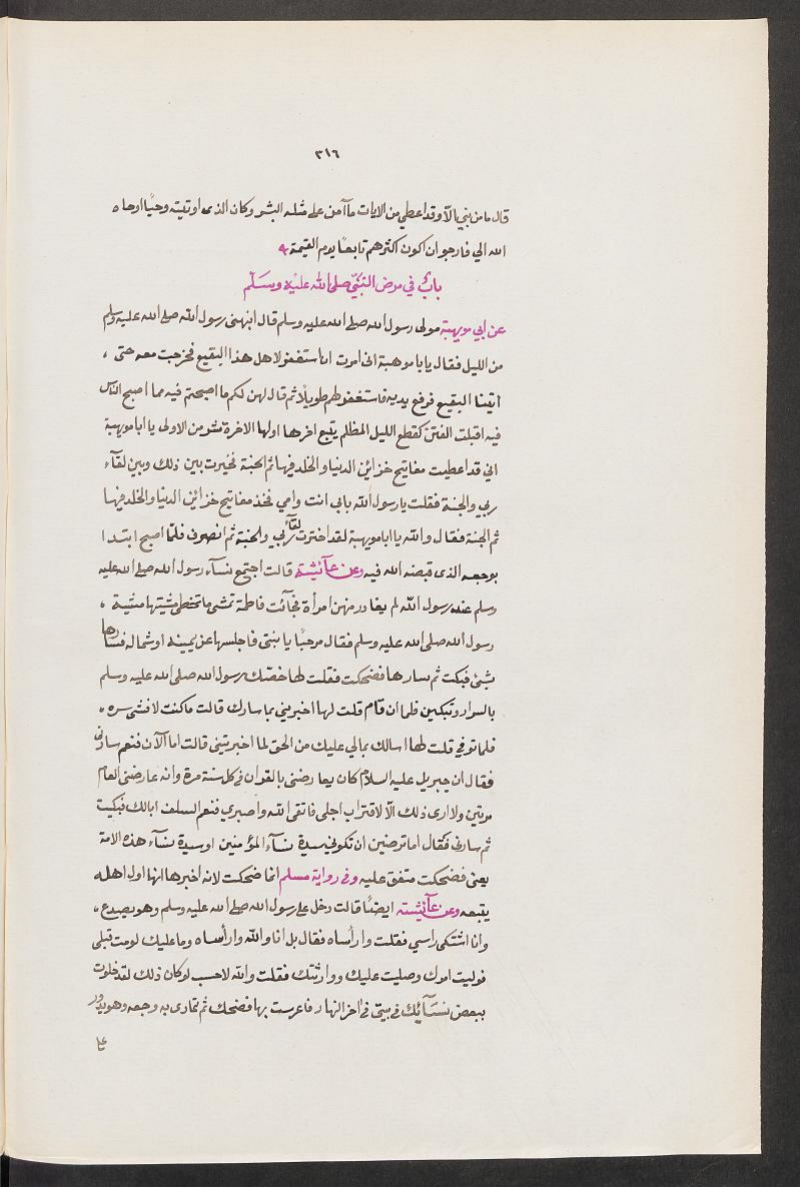 ٣١٦
قال ما من نبي الا وقد اعطي من الايات ما آمن على مثله البشر وكان الذى اوتيته وحيًا اوحاه
الله الي فارجو ان اكون اكثرهم تابعًا يوم القيمة
بابٌ في مرض النبيّ صلى الله عليه وسلم
عن ابي مويهبة مولى رسول الله صلى الله عليه وسلم قال انبهنى رسول الله صلى الله عليه وسلم
من الليل فقال يا با موهبة انى امرت ان استغفر لاهل هذا البقيع فخرجت معه حتى ،
اتينا البقيع فرفع يديه فاستغفر لهم طويلًا ثم قال لهن لكم ما اصبحتم فيه مما اصبح الناس
فيه اقبلت الفتن كقطع الليل المظلم يتبع اخرها اولها الاخرة شر من الاولى يا ابا مويهبة
اني قد اعطيت مفاتيح خزائن الدنيا والخلد فيها ثم الجنة فخيرت بين ذلك وبين لقآء
ربي والجنة فقلت يا رسول الله بابى انت وامي فخذ مفاتيح خزائن الدنيا والخلد فيها
ثم الجنة فقال والله يا ابا مويهبة لقد اخترت لقآء ربي والجنة ثم انصرف فلمّا اصبح ابتدا
بوجعه الذى قبضه الله فيه وعن عآئيشة قالت اجتمع نسآء رسول الله صلى الله عليه
وسلم عند رسول الله لم يغادر منهن امرأة فجآئت فاطمة تمشى ما تخطى مشيتها مشية ،
رسول الله صلى الله عليه وسلم فقال مرحبًا يا بنتى فاجلسها عن يمينه او شماله فسارها
بشئ فبكت ثم سارها فضحكت فقلت لها خصّك رسول الله صلى الله عليه وسلم
بالسرار وتبكين فلما ان قام قلت لها اخبريني بما سارك قالت ما كنت لافشى سره ،
فلما توفي قلت لها اسالك بمالي عليك من الحق لما اخبرتيني قالت اما الآن فنعم سارنى
فقال ان جبريل عليه السلام كان يعارضنى بالقران في كل سنة مرة وانه عارضنى العام
مرتين ولا ارى ذلك الّا لاقتراب اجلى فاتقى الله واصبري فنعم السلف انا لك فبكيت
ثم سارنى فقال اما ترضين ان تكوني سيدة نسآء المؤمنين او سيدة نسآء هذه الامة
يعنى فضحكت متفق عليه وفى رواية مسلم انما ضحكت لانه اخبرها انها اول اهله
يتبعه وعن عآئيشته ايضًا قالت دخل على رسول الله صلى الله عليه وسلم وهو يصدع ،
وانا اشتكى راسي فقلت وا رأساه فقال بل انا والله وا رأساه وما عليك لو مت قبلى
فوليت امرك وصليت عليك وواريتك فقلت والله لاحسب لو كان ذلك لقد خلوت
ببعض نسآئك في بيتى في اخر النهار فاعرست بها فضحك ثم تمادى به وجعه وهو يدور
على